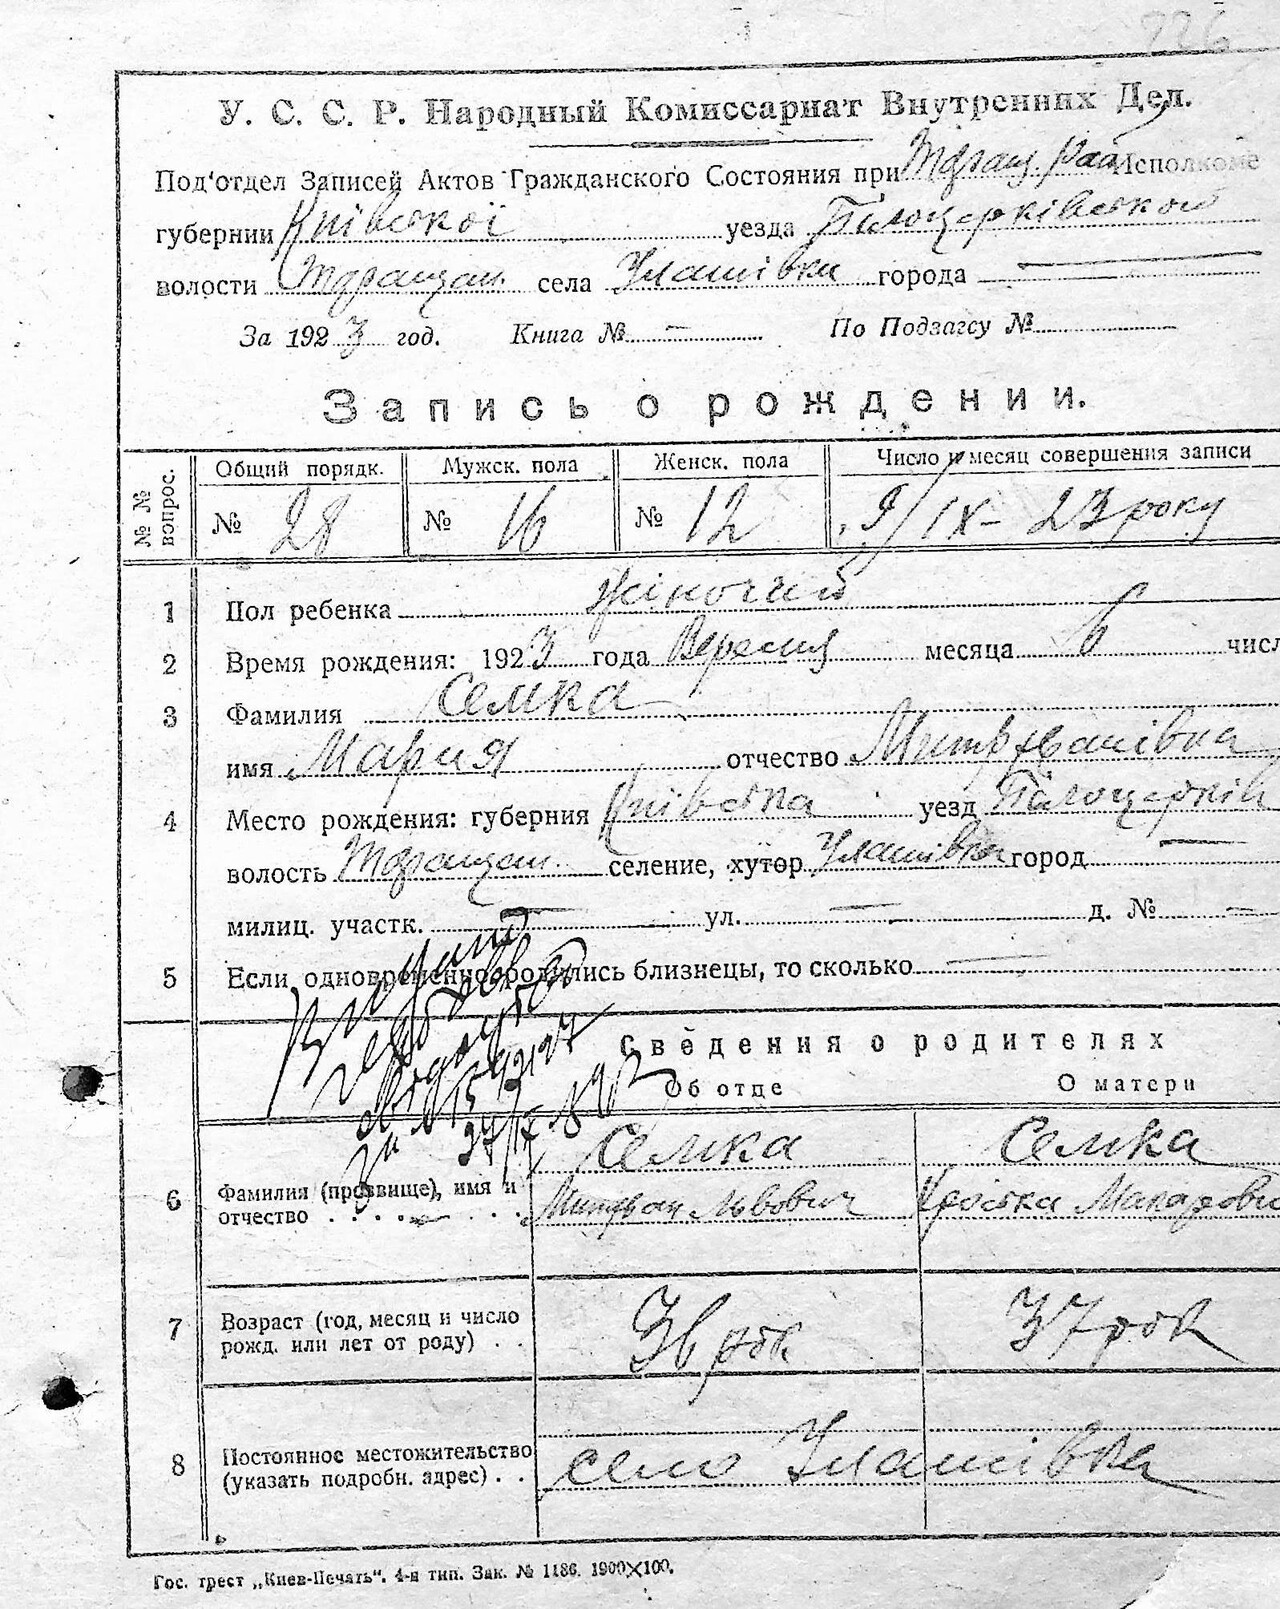 226
У. С. С. Р. Народный Комиссариат Внутренних Дел.
Под'отдел Записей Актов Гражданского Состояния при Исполкоме
губернии Київської уезда Білоцерківської
волости села Улашівки города —
За 1923 год. Книга № — По Подзагсу №
Запись о рождении.
№№ вопрос. Общий порядк. Мужск. пола Женск. пола Число и месяц совершения записи
№ 28 № 16 № 12 9/IX - 23 року
1 Пол ребенка жіночий
2 Время рождения: 1923 года Вересня месяца 6 числ
3 Фамилия Семка
имя Мария отчество Митрофанівна
4 Место рождения: губерния Київська уезд Білоцерків
волость селение, хутор Улашівка город —
милиц. участк. — ул. — д. № —
5 Если одновременно родились близнецы, то сколько —
Сведения о родителях
Об отце О матери
Семка Семка
6 Фамилия (прозвище), имя и отчество Митрофан Львович Макарови
7 Возраст (год, месяц и число рожд. или лет от роду) 36 рок 37 рок
8 Постоянное местожительство (указать подробн. адрес) село Улашівка
Гос. трест „Киев-Печать". 4-я тип. Зак. № 1186. 1900×100.